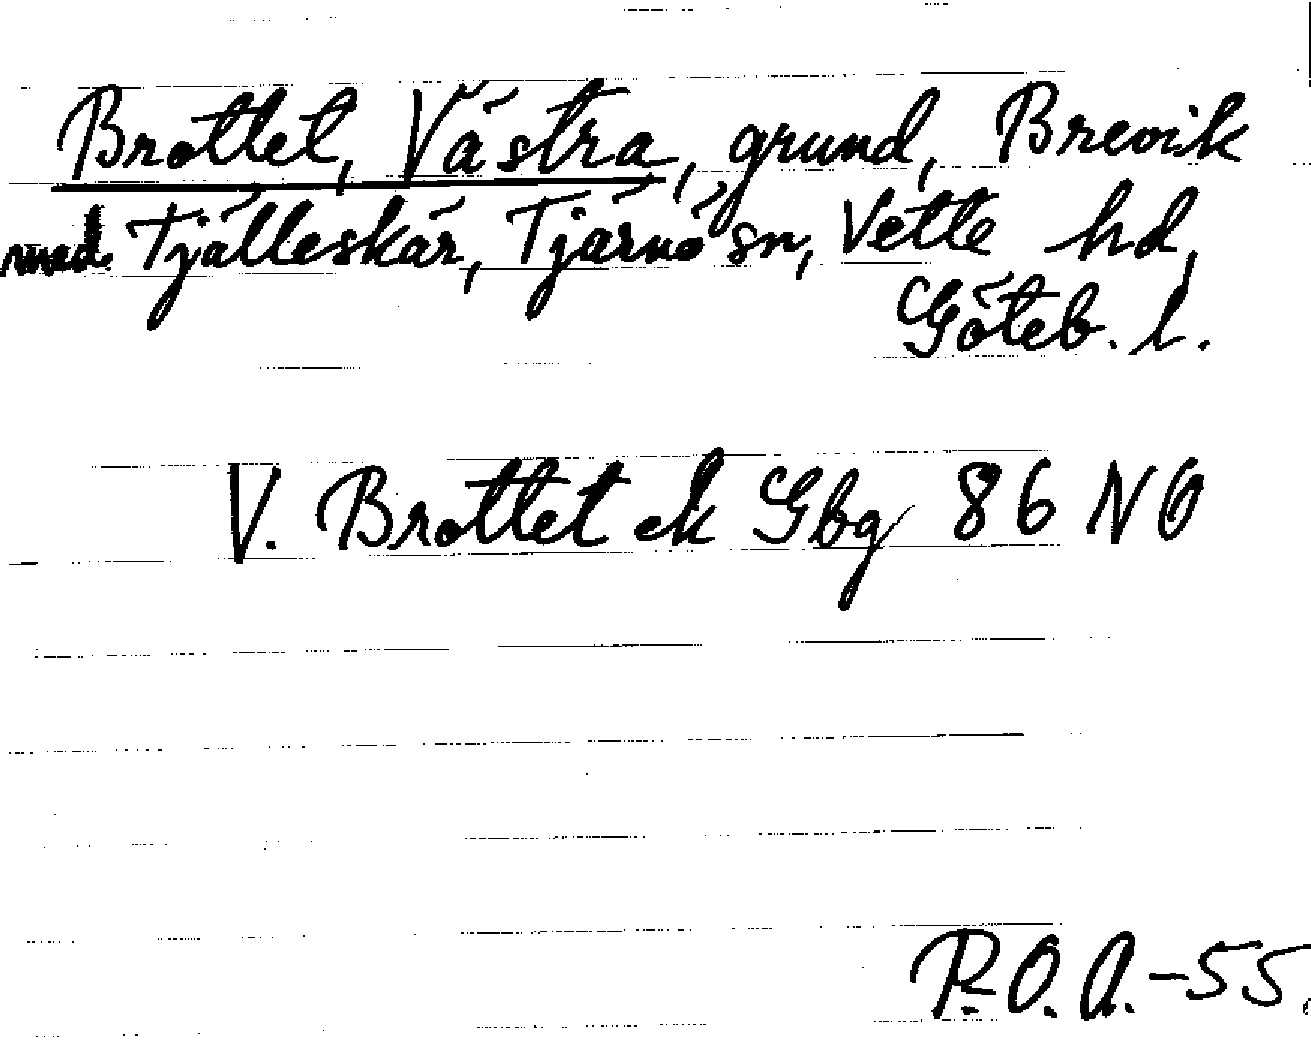 Brottet, Västra, grund, Brevik
med Tjälleskär, Tjärnö sn, Vette hd,
Göteb. l.
V. Brottet ek Gbg 86 NO
R.O.A.-55.